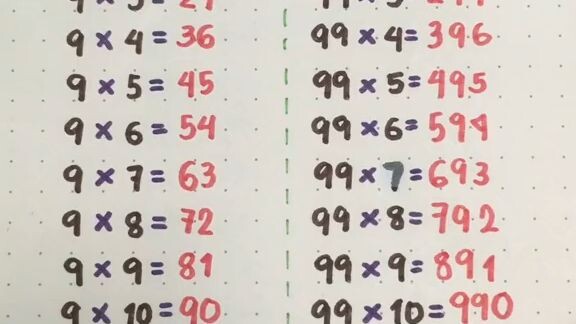 9 × 4 = 36
9 × 5 = 45
9 × 6 = 54
9 × 7 = 63
9 × 8 = 72
9 × 9 = 81
9 × 10 = 90
99 × 4 = 396
99 × 5 = 495
99 × 6 = 594
99 × 7 = 693
99 × 8 = 792
99 × 9 = 891
99 × 10 = 990